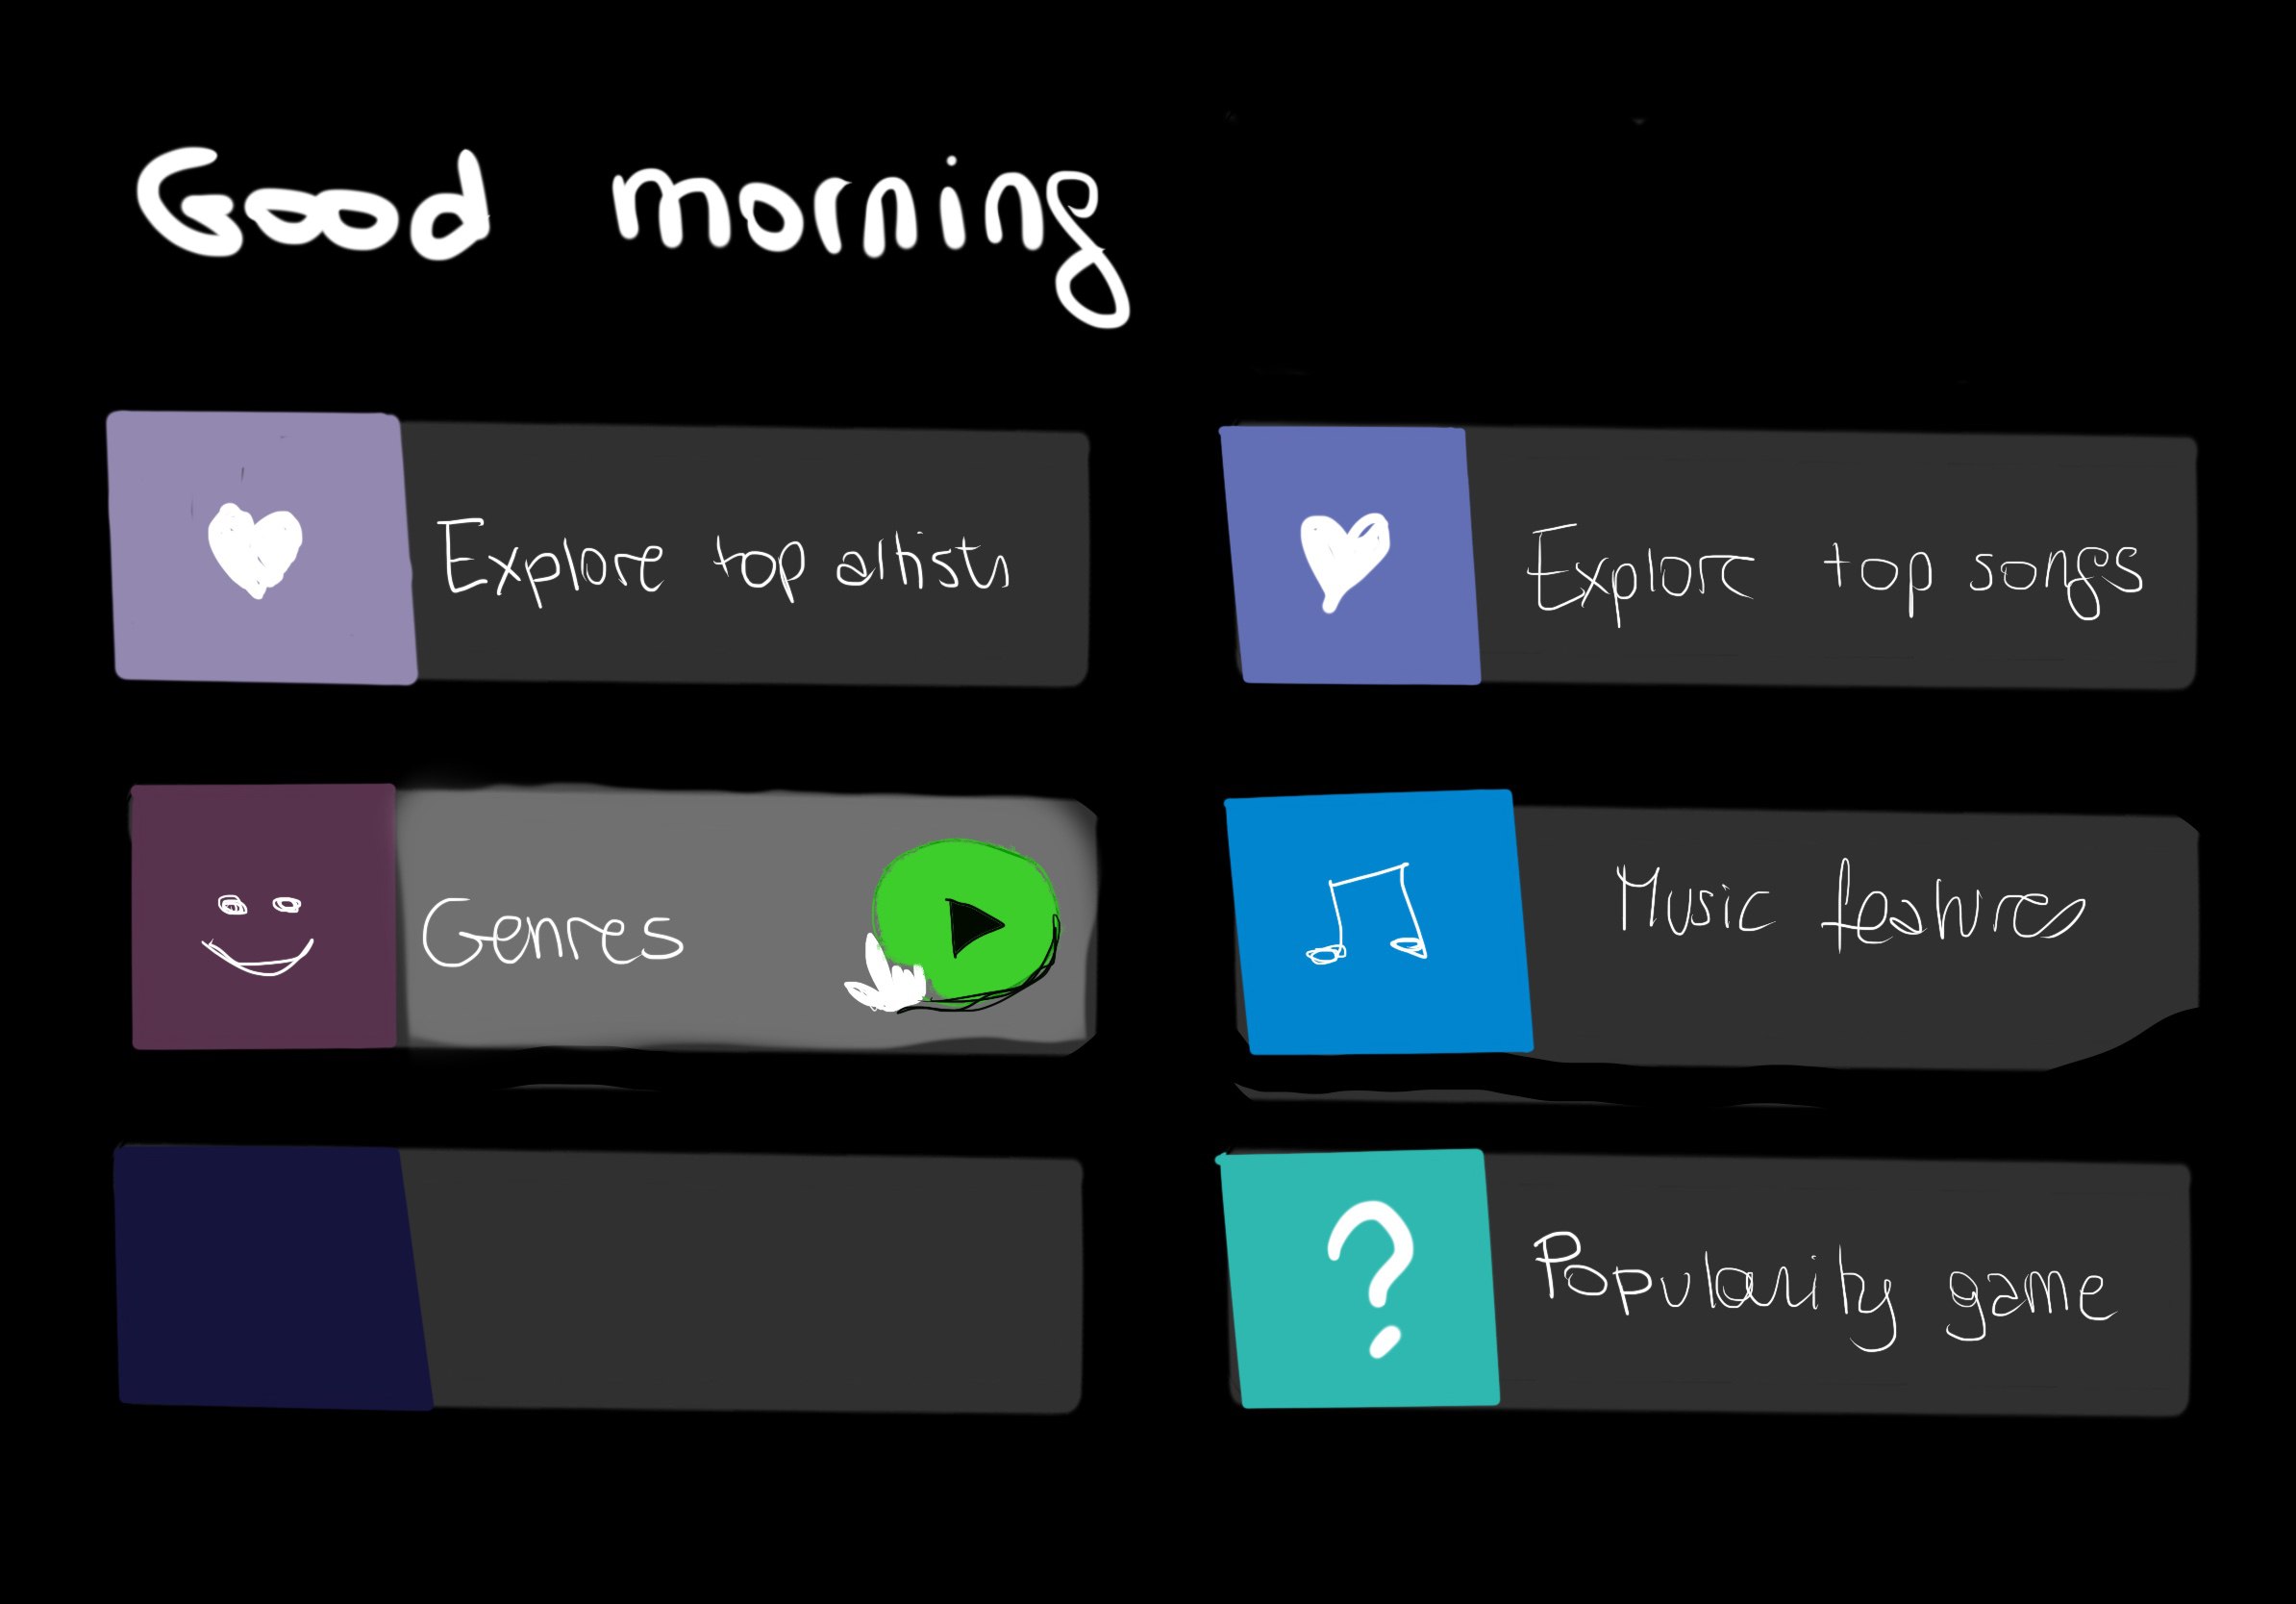 Good morning
Explore top artists
Explore top songs
Genres
Music features
?
Popularity game